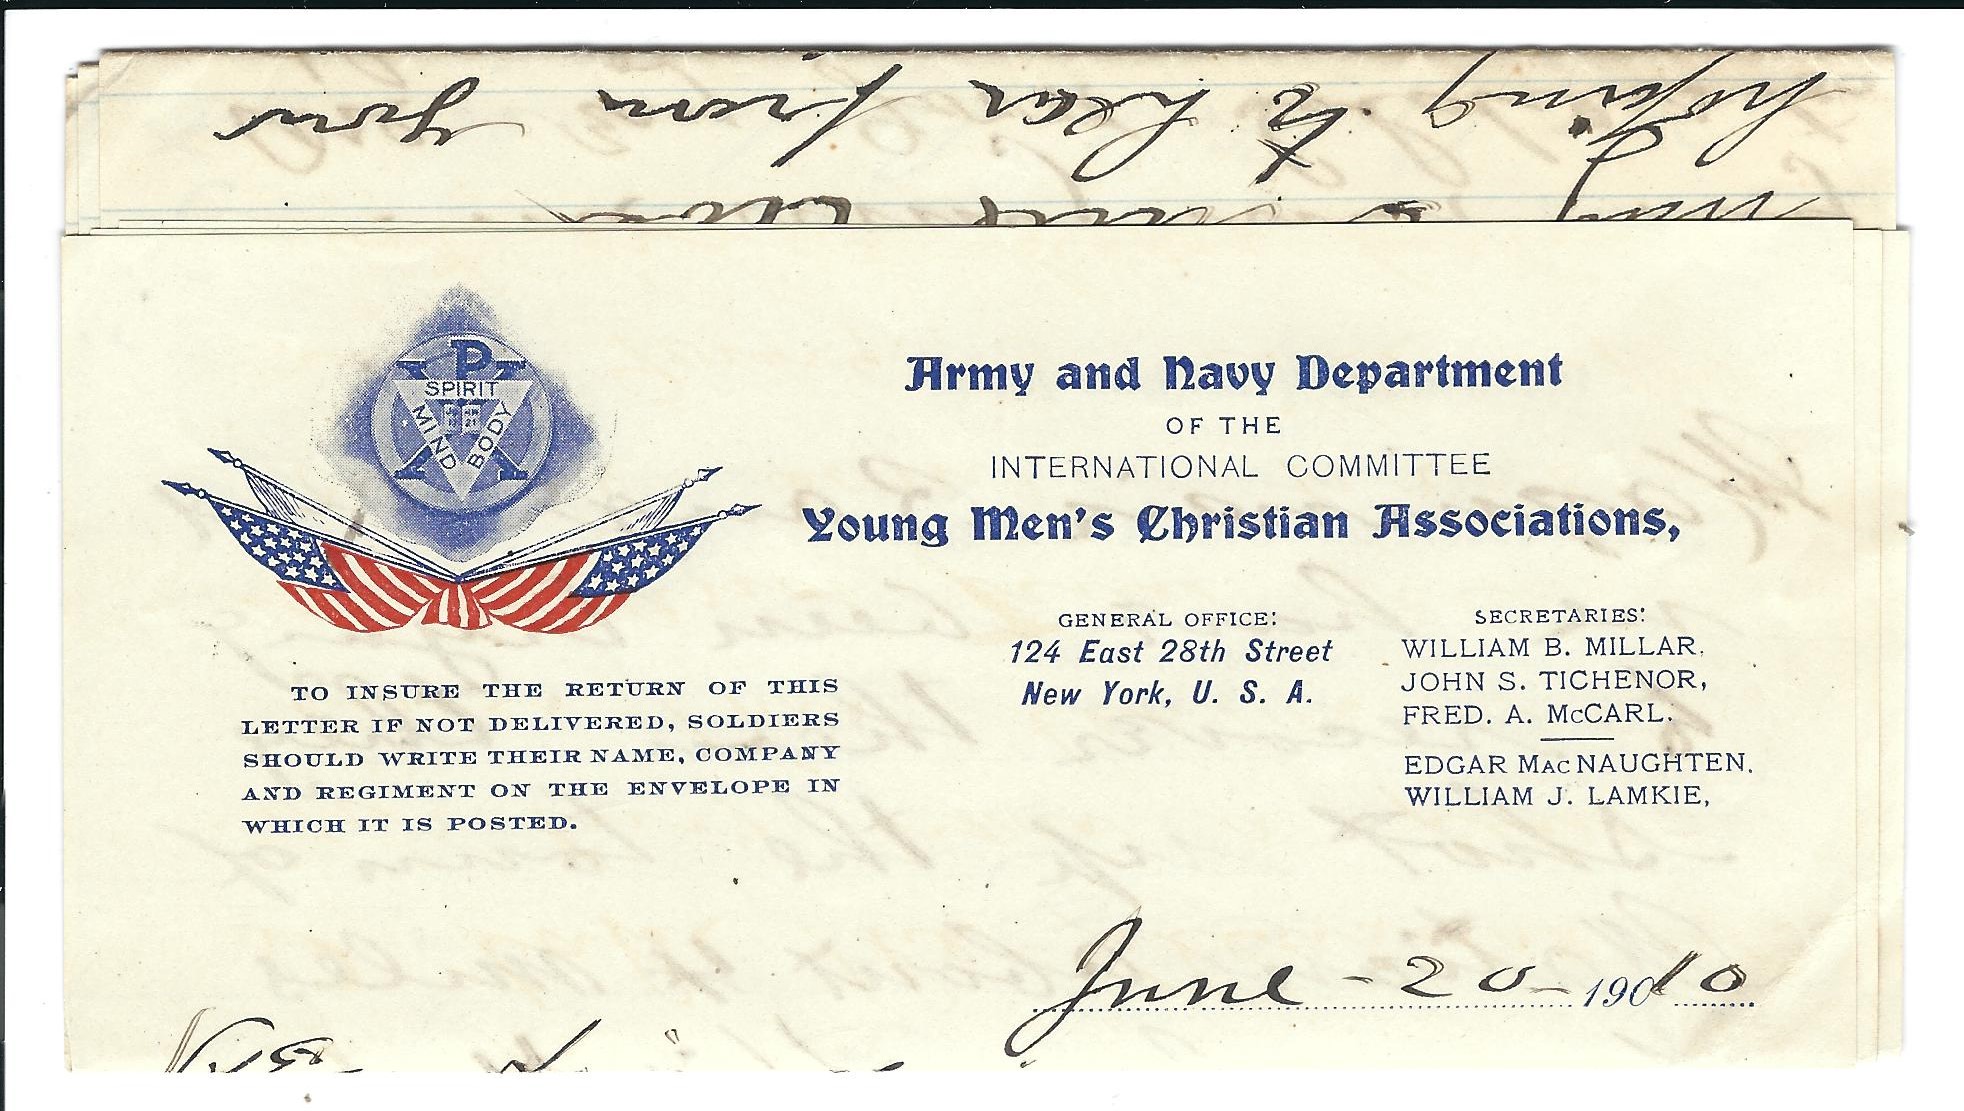 hoping to hear from you
P
SPIRIT
MIND
BODY
Army and Navy Department
OF THE
INTERNATIONAL COMMITTEE
Young Men's Christian Associations,
GENERAL OFFICE:
124 East 28th Street
New York, U. S. A.
SECRETARIES:
WILLIAM B. MILLAR,
JOHN S. TICHENOR,
FRED. A. McCARL.
EDGAR MacNAUGHTEN.
WILLIAM J. LAMKIE,
TO INSURE THE RETURN OF THIS
LETTER IF NOT DELIVERED, SOLDIERS
SHOULD WRITE THEIR NAME, COMPANY
AND REGIMENT ON THE ENVELOPE IN
WHICH IT IS POSTED.
June - 20 - 19010